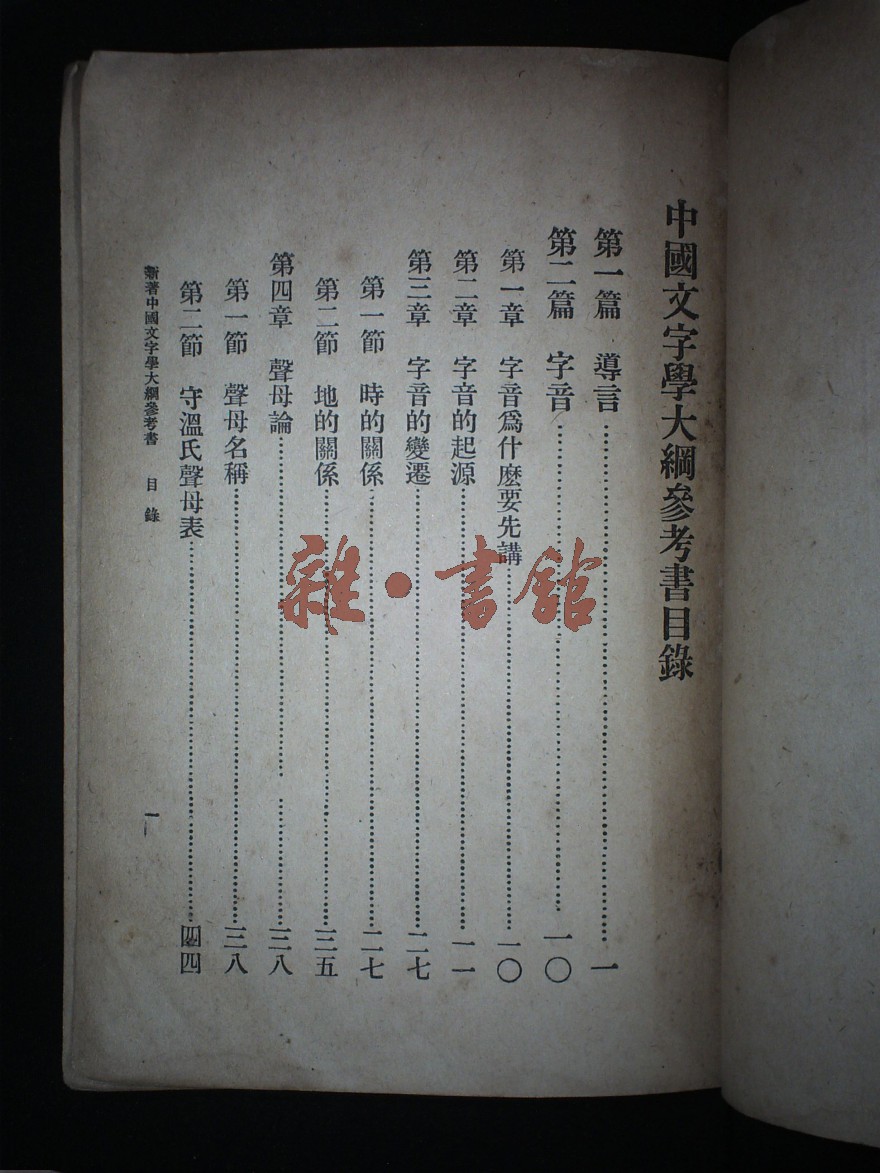 中國文字學大綱參考書目錄
第一篇　導言…………一
第二篇　字音…………一〇
第一章　字音爲什麽要先講…………一〇
第二章　字音的起源…………一一
第三章　字音的變遷…………二七
第一節　時的關係…………二七
第二節　地的關係…………三五
第四章　聲母論…………三八
第一節　聲母名稱…………三八
第二節　守溫氏聲母表…………四四
新著中國文字學大綱參考書　目錄　一
雜·書館